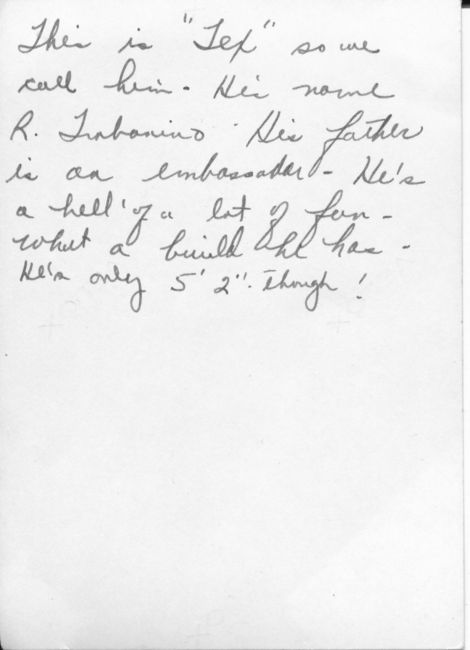 This is "Tex" so we
call him - His name
R. His father
is an embassador - He's
a hell' of a lot of fun -
What a build he has -
He's only 5' 2". though!